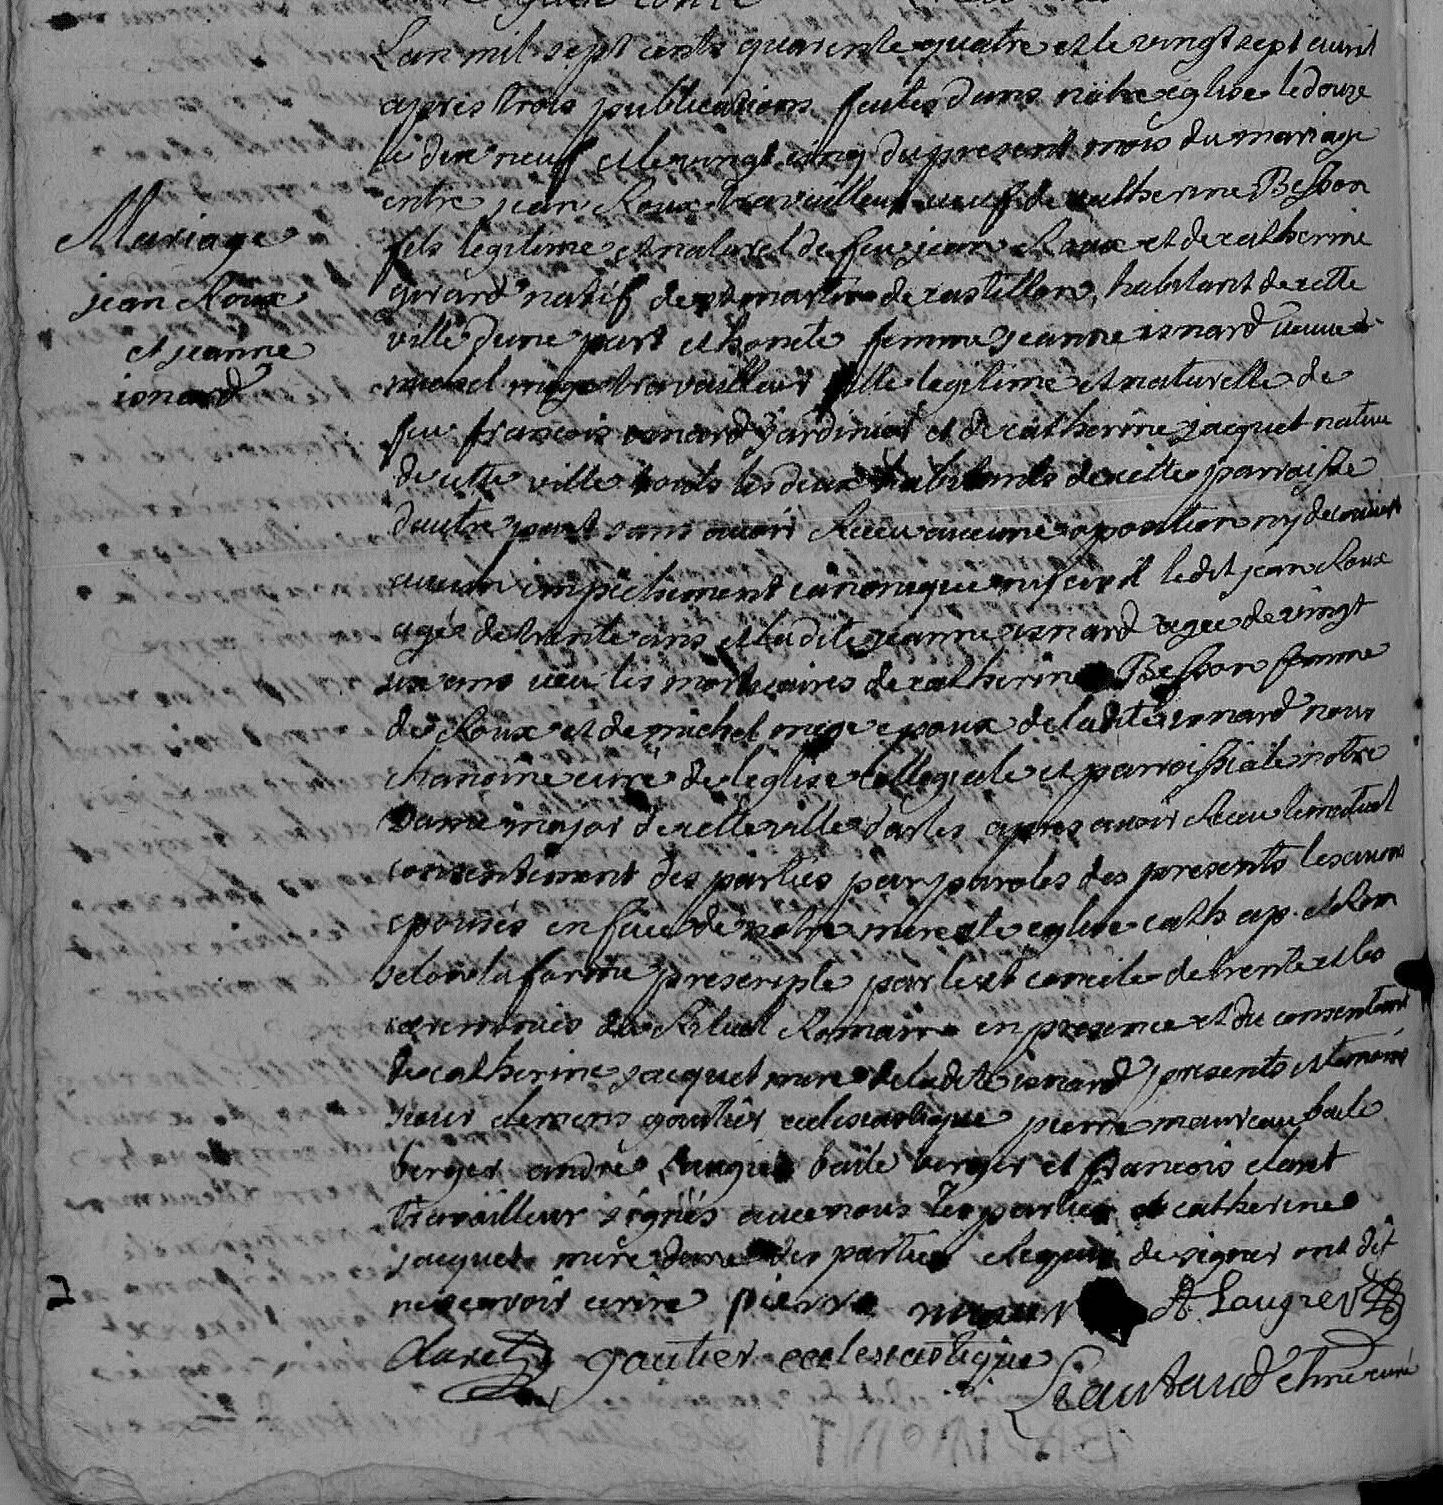 L'an mil sept cents quarente quatre et le vingt sept avril
apres trois publications faites dans notre eglise le douze
le dix neuf et le vingt cinq du present mois du mariage
entre jean Roux travailleur veuf de catherine Besson
fils legitime et naturel de feu jean Roux et de catherine
girard natif de st martin de castillon habitant de cette
ville d'une part et honete femme jeanne isnard veuve de
michel mege travailleur fille legitime et naturelle de
feu francois isnard jardinier et de catherine jacquet native
de cette ville touts les deux habitants de cette parroisse
d'autre part sans avoir Receu aucune oposition ny decouvert
aucun empechement canonique ny civil ledit jean Roux
agé de trente ans et ladite jeanne isnard agee de vingt
ans veu les mortuaires de catherine Besson femme
de Roux et de michel mege epoux de ladite isnard nous
chanoine curé de leglise collegiale et parroissiale notre
Dame major de cette ville d'arles apres avoir Receu le mutuel
consentement des parties par paroles des presents les avons
epousés en face de notre mere ste eglise cath ap. et Rom
selon la forme prescripte par le st concile de trente et les
ceremonies du Rituel Romain en presence et du consentement
de catherine jacquet mere de ladite isnard presents et temoins
sieur clemens gautier ecclesiastique pierre maureau baile
berger andré Laugier baile berger et francois claret
travailleur signés avec nous les parties et catherine
jacquet mere des parties de signer ont dit
ne scavoir ecrire pierre A Laugier
claret gautier ecclesiastique
Leautaud chne curé
Mariage
jean Roux
et jeanne
isnard